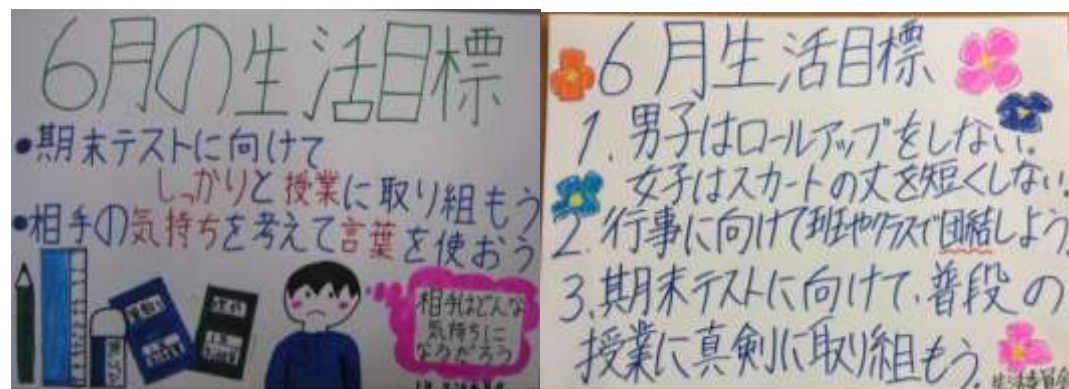 6月の生活目標
•期末テストに向けて
しっかりと授業に取り組もう
•相手の気持ちを考えて言葉を使おう
相手はどんな
気持ちに
なるだろう
6月生活目標
1.男子はロールアップをしない.
女子はスカートの丈を短くしない.
2.行事に向けて班やクラスで団結しよう
3.期末テストに向けて、普段の
授業に真剣に取り組もう.